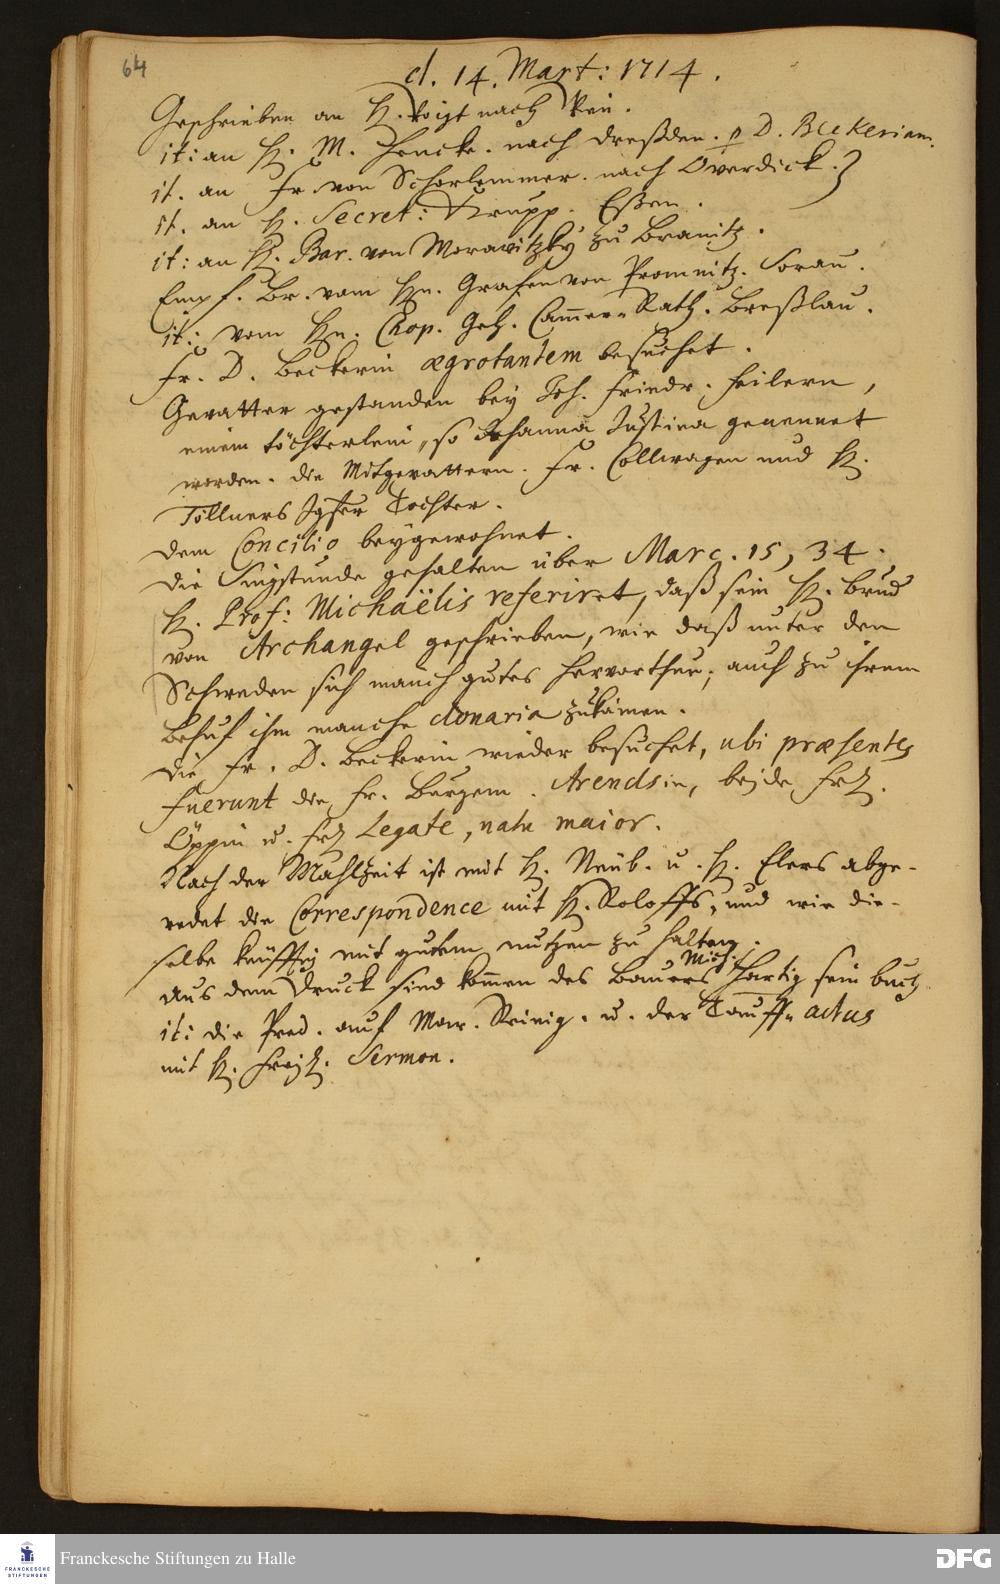 64
d. 14. Mart: 1714.
Geschrieben an H. Voigt nach
it: an H. M. Hencke. nach Dreßden. p D. Beckeriam.
it. an Fr. von Schorlemmer. nach Overdick.
it. an H. Secret: Krupp. Eßen.
it: an H. Bar. von Morawitzky zu Branitz.
Empf. Br. vom Hn. Grafen von Promnitz. Sorau.
it: vom Hn. Geh. Cammer-Rath. Breßlau.
Fr. D. Beckerin ægrotantem besuchet.
Gevatter gestanden bey Joh. Friedr. Heilern,
einem töchterlein, so Johanna Justina genennet
worden. die Mitgevattern. Fr. Collwagen und H.
Töllners Jgfer Tochter.
Dem Concilio beygewohnet.
Die Singstunde gehalten über Marc. 15, 34.
H. Prof: Michaëlis referiret, daß sein H. Brud
von Archangel geschrieben, wie daß unter den
Schweden sich manch gutes hervorthue; auch zu ihrem
Behuf ihm manche donaria zukämen.
Die Fr. D. Beckerin wieder besuchet, ubi præsentes
fuerunt die Fr. Bergem. Arendsin, beyde Frl.
u. Frl Legate, natu maior.
Nach der Mahlzeit ist mit H. Neub. u. H. Elers abge-
redet die Correspondence mit H. Roloffs, und wie die-
selbe künfftig mit gutem nutzen zu halten.
Aus dem Druck sind kommen des Bauers Mich. Hartig sein buch
it: die Pred. auf Mar. Reinig. u. der Tauff-actus
mit H. Freyl. Sermon.
Franckesche Stiftungen zu Halle
FRANCKESCHE STIFTUNGEN
DFG